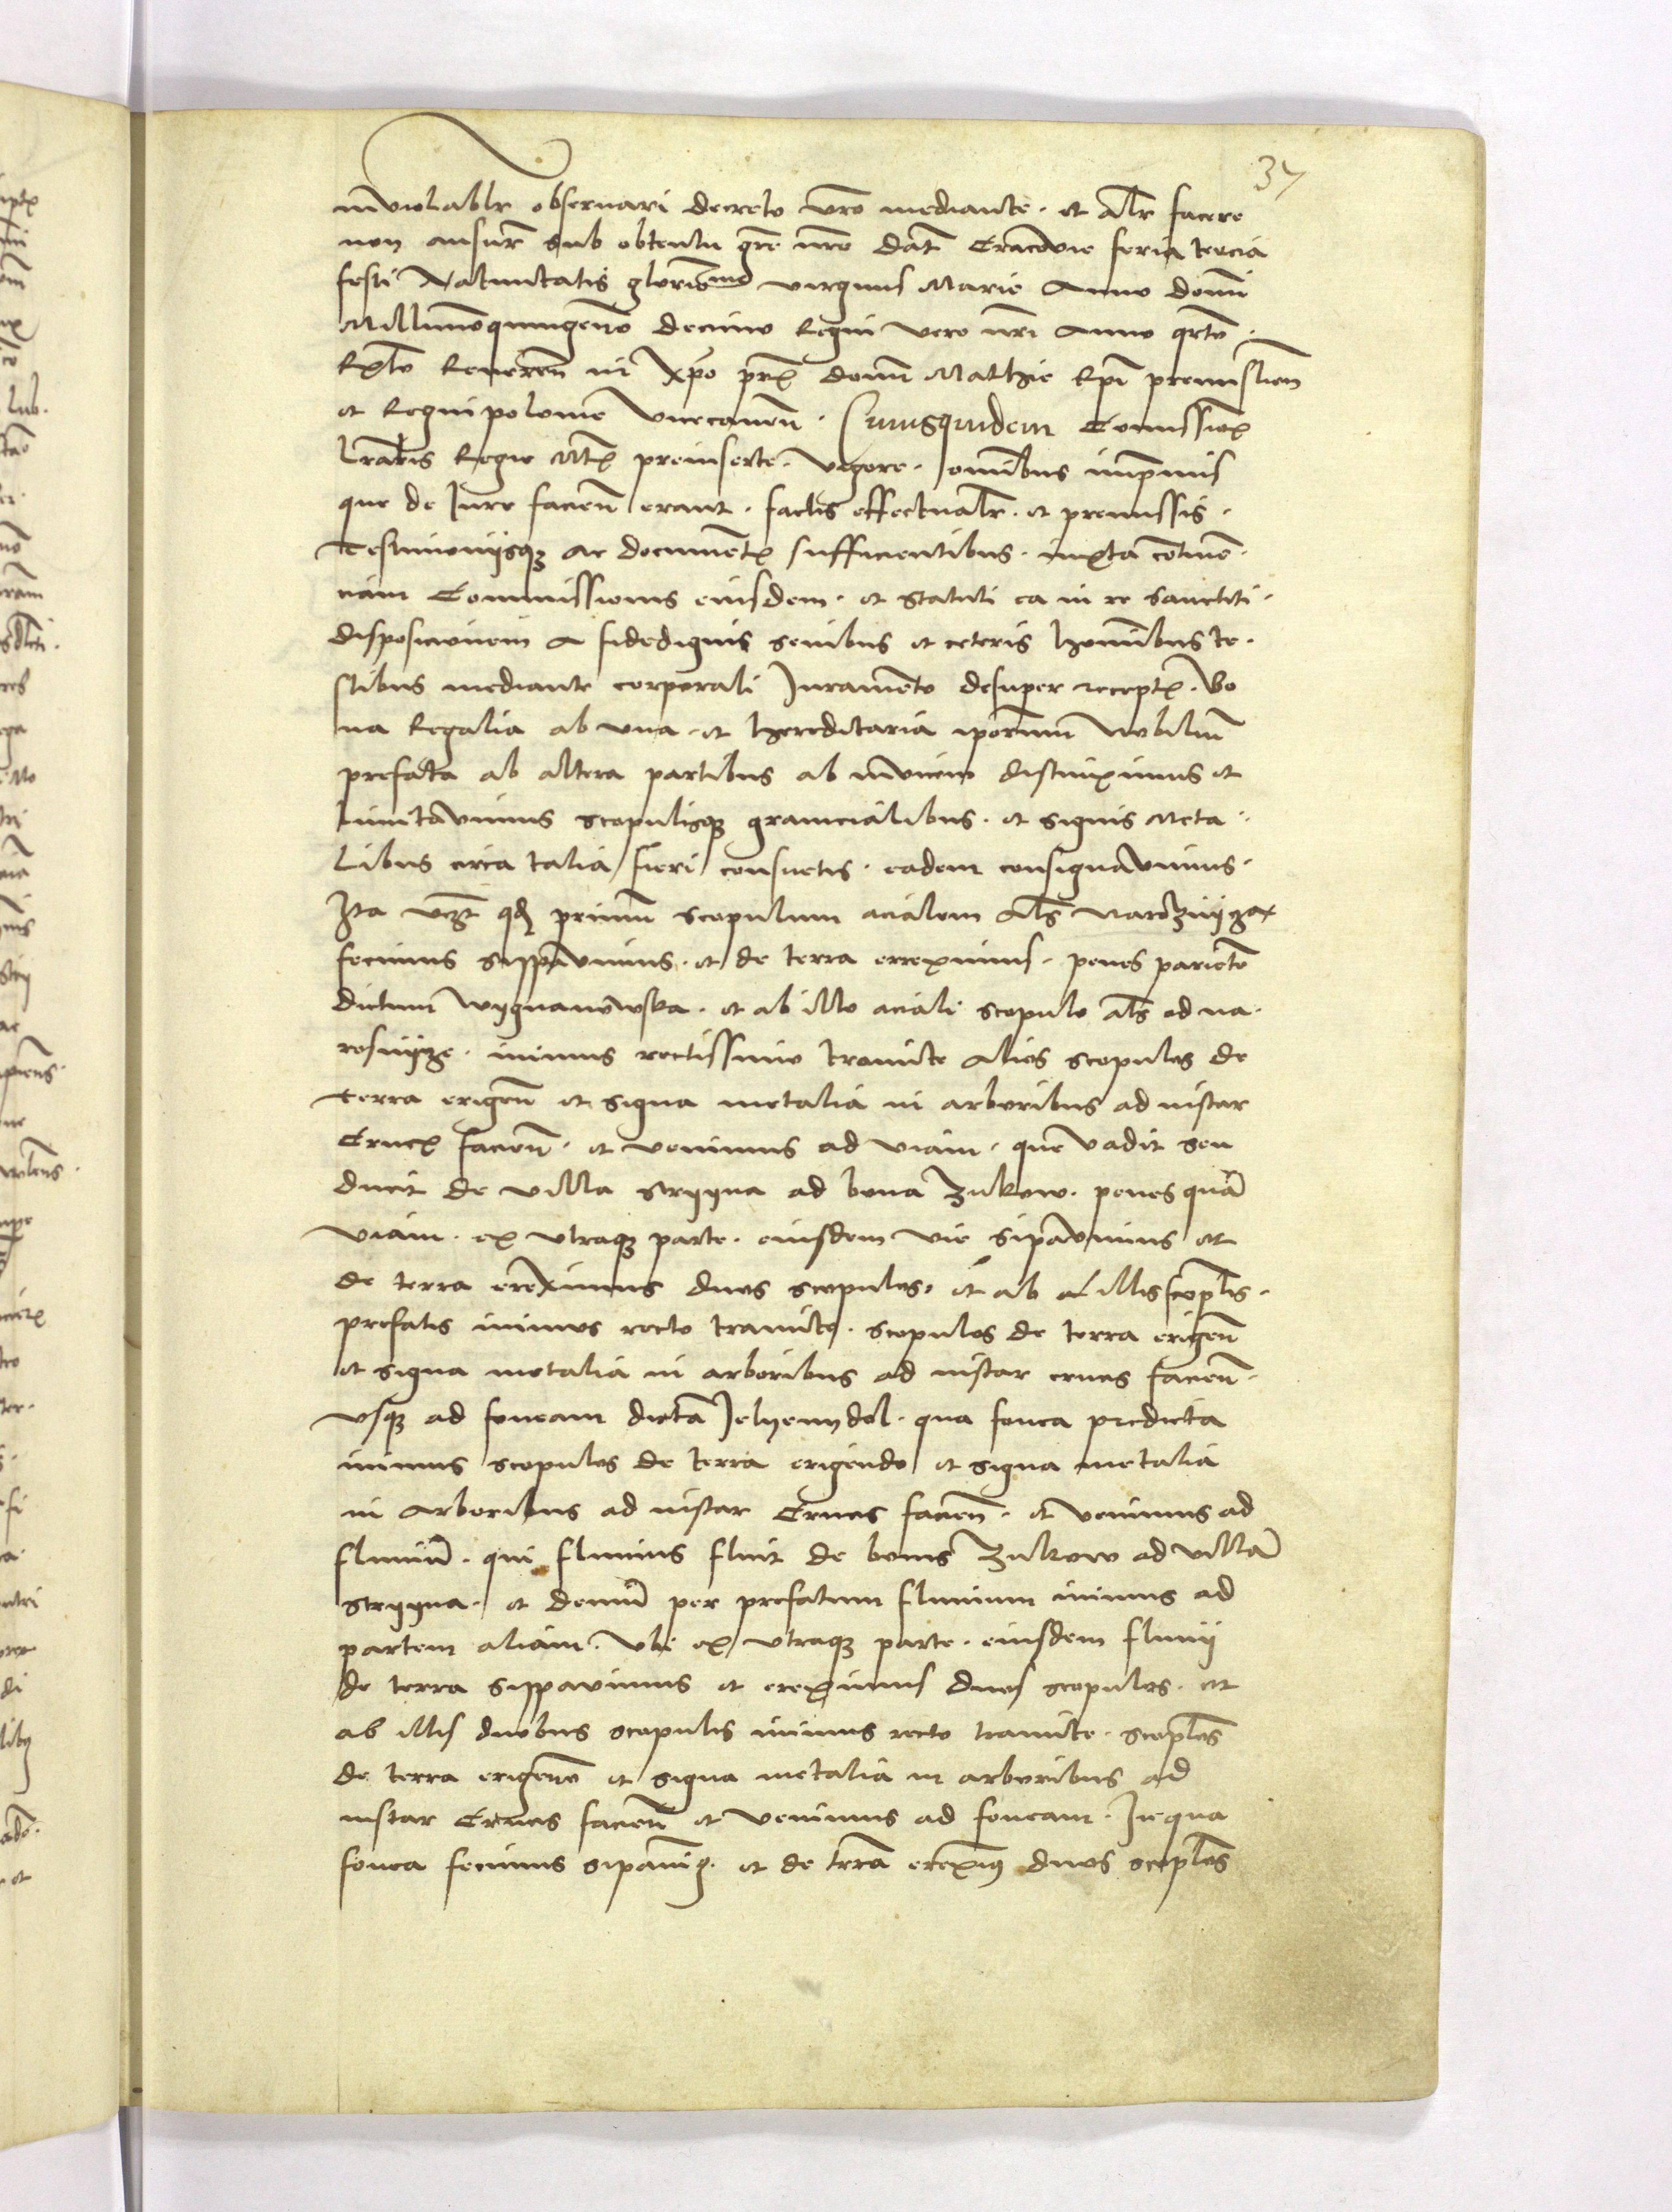 37
inviolablr observari decreto vro mediante. et alr facere
non ansur sub obtentu gre nre Dat Cracovie feria tercia
festi Nativitatis gloriosme virginis Marie Anno domi
Millimoquingeno decimo Regni vero nri Anno qrto.
Rlo Reveren in xpo pr domi Mathie Epi premislien
et Regni polonie vicecanen. Cuiusquidem Comission
Lraris Regie Mt preinserte. vigore. omnibus inprimis
que de Iure facien erant. factis effectualr. et premissis.
Testimoniisq ac document sufficientibus. iuxta contine.
ciam Commissionis eiusdem. et statuti ea in re sanctiti.
disposicionem a fidedignis senibus et ceteris hominibus te.
stibus mediante corporali Iuramento desuper recept. Bo
na Regalia ab vna. et hereditaria ipsorum Nobilium
prefata ab altera partibus ab invicem distinximus et
limitavimus scopulisq granicialibus. et signis Meta.
Libus circa talia fieri consuetis. eadem consignavimus.
Ita vczt qd primum scopulum acialem als narozniicza
fecimus sippavimus. et de terra erreximus. penes pariete
dictum wygnanowska. et ab illo aciali scopulo als od na.
rosniicze. ivimus rectissimo tramite Alios scopulos de
terra erigen et signa metalia in arboribus ad instar
Cruc facien. et venimus ad viam. que vadit seu
ducit de villa Stryyna ad bona Zukow. penes qua
viam. ex vtraq parte. eiusdem vie sipavimus et
de terra ereximus duos scopulos. et ab illis scoplis.
prefatis ivimus recto tramite. scopulos de terra erigen
et signa metalia in arboribus ad instar crucis facien.
vsq ad foveam dicta Jelyenydol. qua fovea predicta
ivimus scopulos de terra erigendo et signa metalia
in arboribus ad instar Crucis facien. et venimus ad
fluviu. qui fluvius fluit de bonis Zukow ad villa
Stryyna. et demu per prefatum fluvium ivimus ad
partem aliam. vbi ex vtraq parte. eiusdem fluvii
de terra sippavimus et ereximus duos scopulos. et
ab illis duobus scopulis ivimus recto tramite. scoplos
de terra erigen et signa metalia in arboribus ad
instar Crucis facien et venimus ad foveam. In qua
fovea fecimus sipavig. et de terra erexi9 duos scoplos